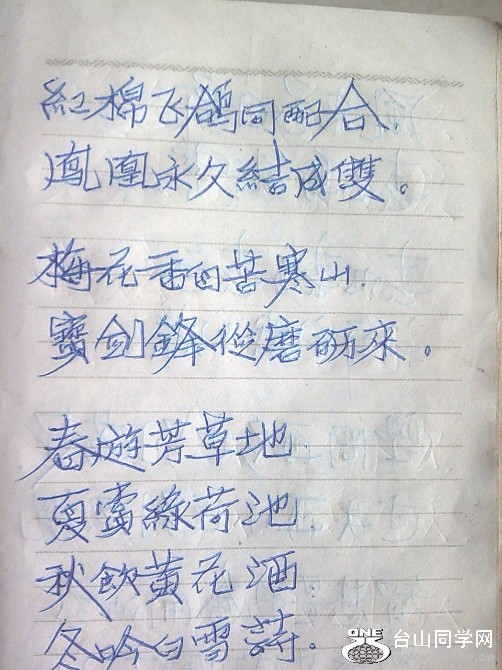 紅棉飞鴿同配合.
鳳凰永久結成雙。
梅花香自苦寒山.
寶剑鋒從磨砺來。
春遊芳草地.
夏賞綠荷池.
秋飲黃花酒.
冬吟白雪詩。
ONE 台山同学网